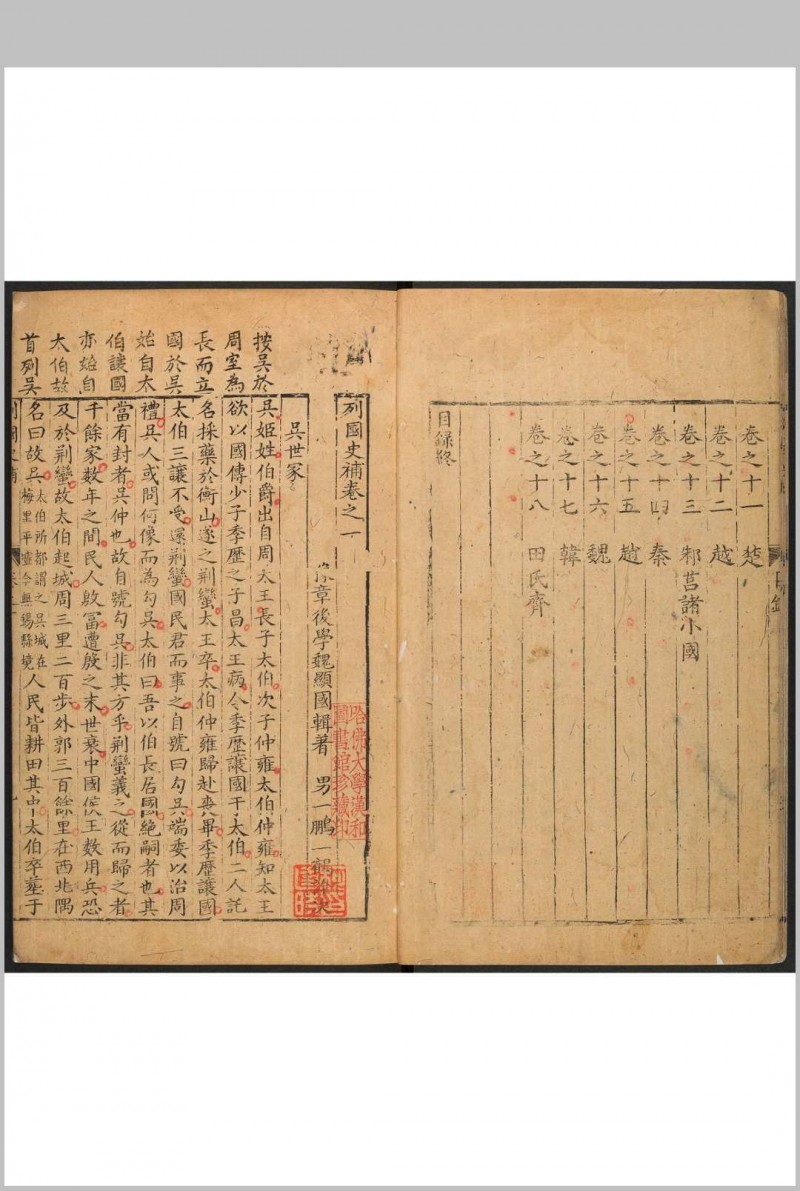 卷之十一 楚
卷之十二 越
卷之十三 邾莒諸小國
卷之十四 秦
卷之十五 趙
卷之十六 魏
卷之十七 韓
卷之十八 田氏齊
目録終
列國史補卷之一
章後學魏顯國輯著 男一鵬一
哈佛大學漢和
圖書館珍藏印
吳世家
按吳於
周室為
長而立
國於吳
始自太
伯讓國
亦始自
太伯故
首列吳
吳姬姓伯爵出自周太王長子太伯次子仲雍太伯仲雍知太王
欲以國傳少子季歷之子昌太王病令季歷讓國于太伯二人託
名採藥於衡山遂之荆蠻太王卒太伯仲雍歸赴喪畢季歷讓國
太伯三讓不受還荆蠻國民君而事之自號曰勾吳端委以治周
禮吳人或問何像而為勾吳太伯曰吾以伯長居國絶嗣者也其
當有封者吳仲也故自號勾吳非其方乎荆蠻義之從而歸之者
千餘家數年之間民人殷冨遭殷之末世衰中國侯王數用兵恐
及於荆蠻故太伯起城周三里二百步外郭三百餘里在西北隅
名曰故吳太伯所都謂之吳城在梅里平墟今無錫縣境人民皆耕田其中太伯卒塟于